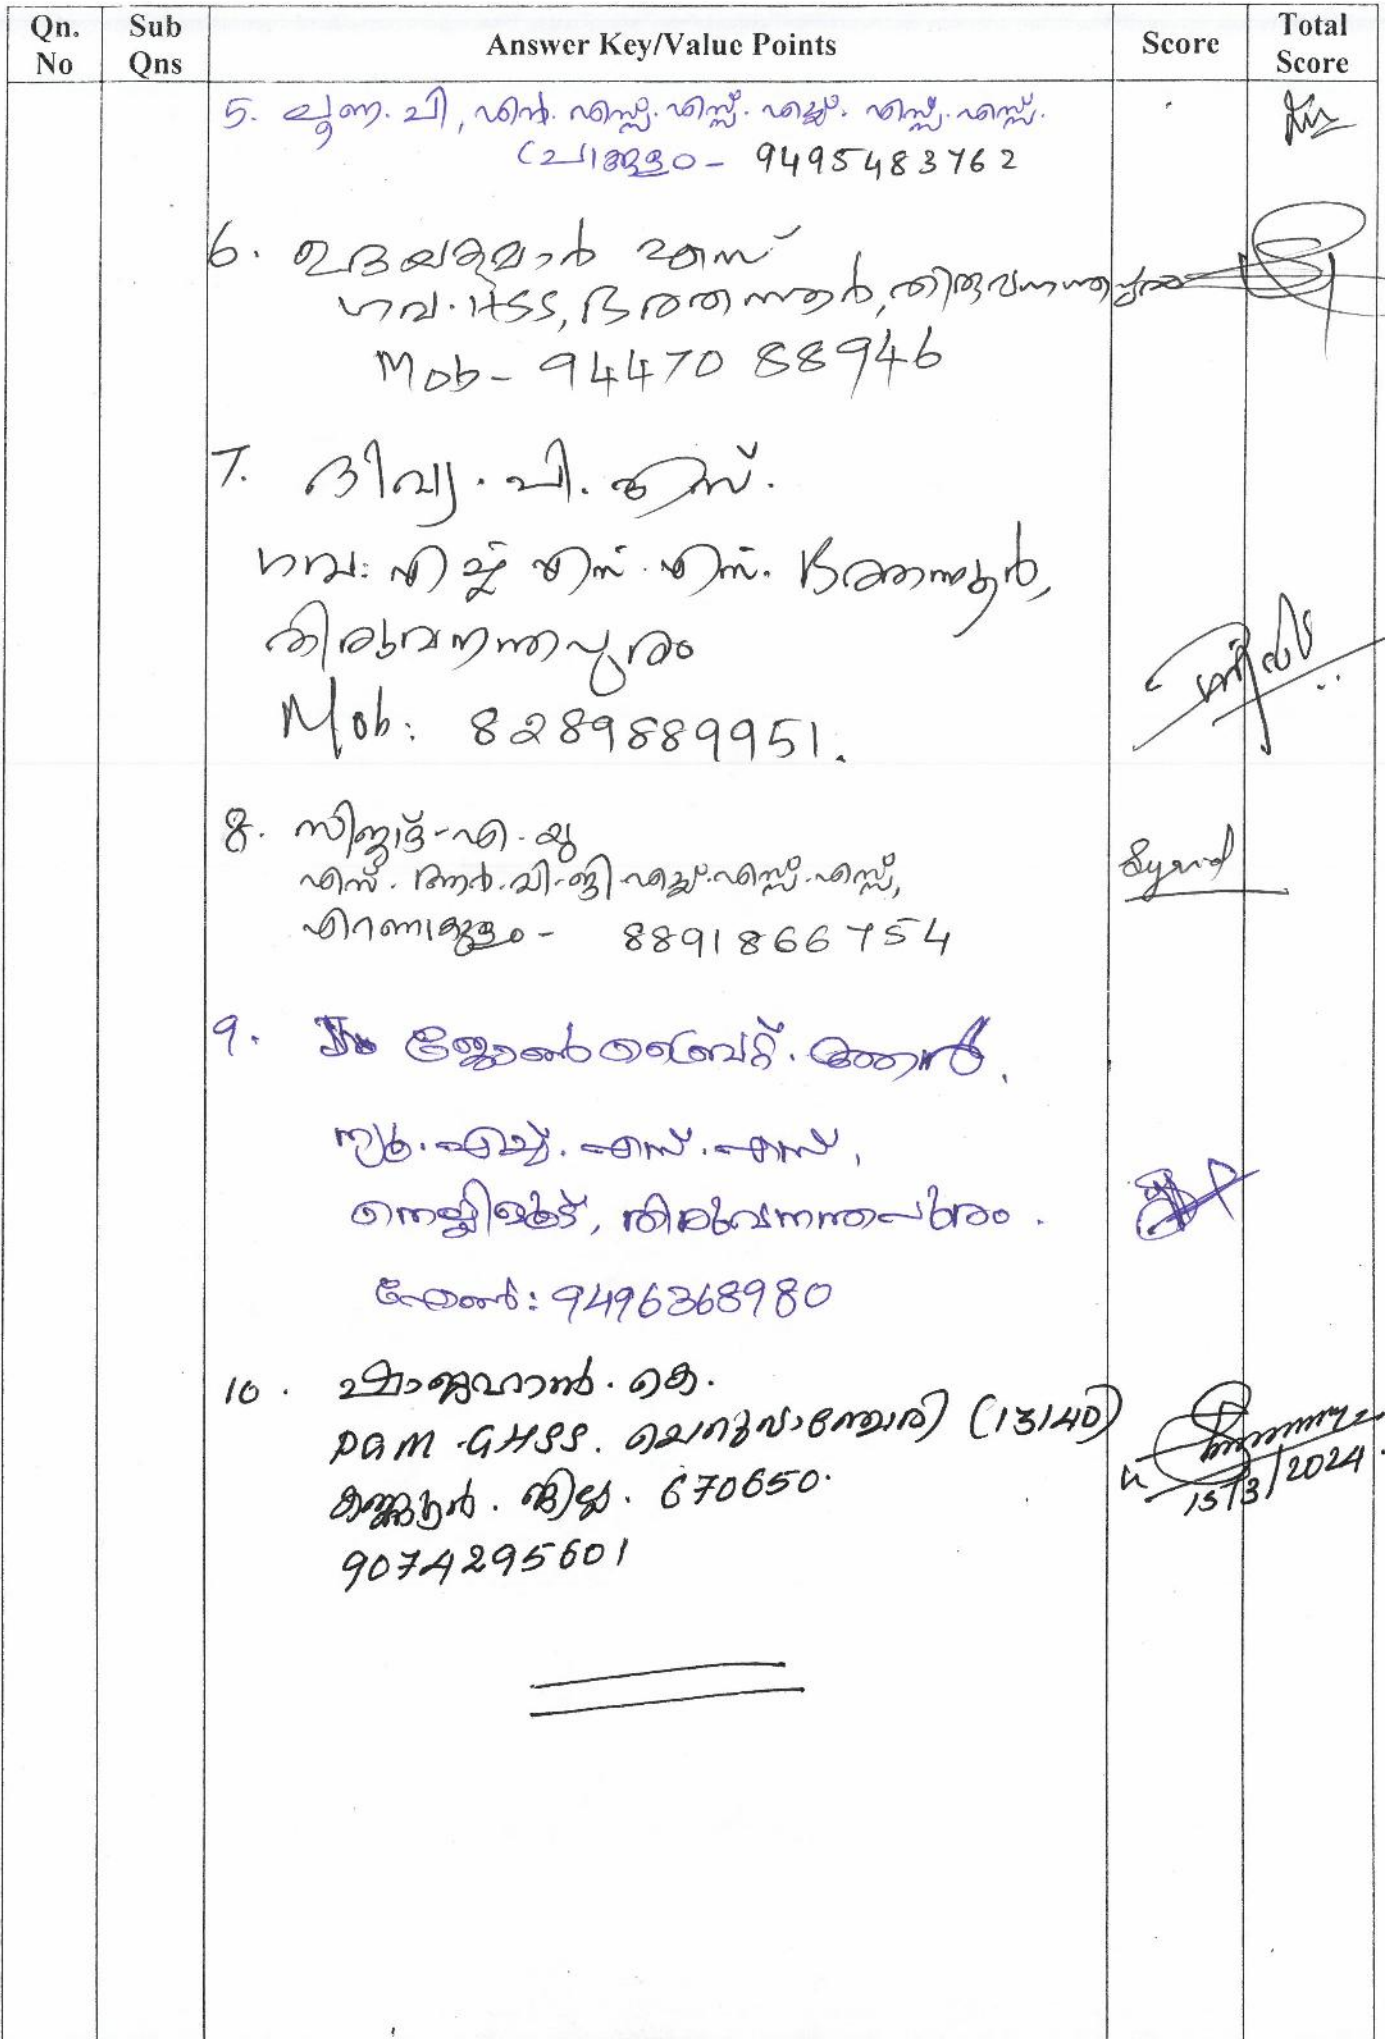 Qn. No
Sub Qns
Answer Key/Value Points
Score
Total Score
5. ലൂണ. പി, എൻ. എസ്സ്. എസ്സ്. എച്ച്. എസ്സ്. എസ്സ്.
9495483762
6. ഉദയകുമാർ എസ്
ഗവ. HSS, ഭരതന്നൂർ, തിരുവനന്തപുരം
Mob - 94470 88946
7. ദിവ്യ. പി. എസ്.
ഗവ: എച്ച് എസ്. എസ്. ഭരതന്നൂർ,
തിരുവനന്തപുരം
Mob: 8289889951.
8. സിജാദ് - എ - യു
എസ്. ആർ. വി - ജി എച്ച്. എസ്സ്. എസ്സ്,
എറണാകുളം - 8891866754
9. ജോൺ ബ്രൈറ്റ്.
ന്യൂ. എച്ച്. എസ്. എസ്,
നെല്ലിമൂട്, തിരുവനന്തപുരം.
ഫോൺ: 9496368980
10. ഷാജഹാൻ. കെ.
PGM. GHSS. ചെറുവാഞ്ചേരി (13140)
കണ്ണൂർ. ജില്ല. 670650.
9074295601
15/3/2024.